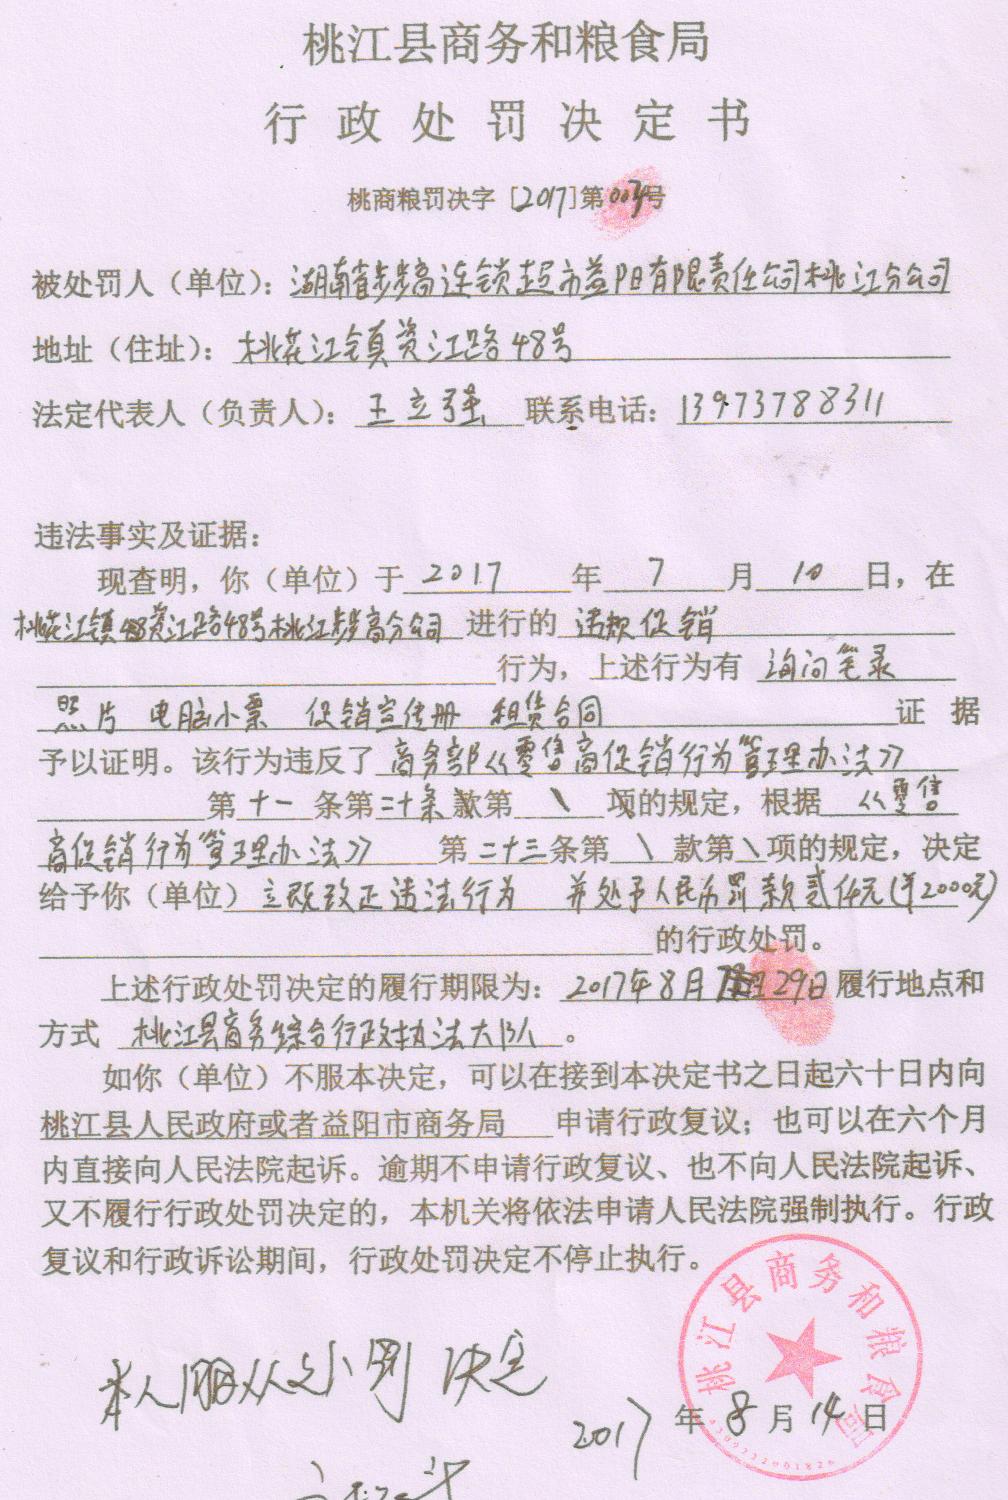 桃江县商务和粮食局
行政处罚决定书
桃商粮罚决字［2017］第003号
被处罚人（单位）：湖南省步步高连锁超市益阳有限责任公司桃江分公司
地址（住址）：桃花江镇资江路48号
法定代表人（负责人）：王立强 联系电话：13973788311
违法事实及证据：
现查明，你（单位）于 2017 年 7 月 10 日，在
桃花江镇资江路48号桃江步步高分公司 进行的 违规促销
行为，上述行为有 询问笔录
照片 电脑小票 促销宣传册 租赁合同 证据
予以证明。该行为违反了 商务部《零售商促销行为管理办法》
第十一条第二十条款第 \ 项的规定，根据《零售
商促销行为管理办法》 第二十三条第 \ 款第 \ 项的规定，决定
给予你（单位）立既改正违法行为 并处予人民币罚款贰仟元（￥2000元）
的行政处罚。
上述行政处罚决定的履行期限为：2017年8月29日履行地点和
方式 桃江县商务综合行政执法大队。
如你（单位）不服本决定，可以在接到本决定书之日起六十日内向
桃江县人民政府或者益阳市商务局 申请行政复议；也可以在六个月
内直接向人民法院起诉。逾期不申请行政复议、也不向人民法院起诉、
又不履行行政处罚决定的，本机关将依法申请人民法院强制执行。行政
复议和行政诉讼期间，行政处罚决定不停止执行。
桃江县商务和粮食局
本人服从处罚决定
2017年8月14日